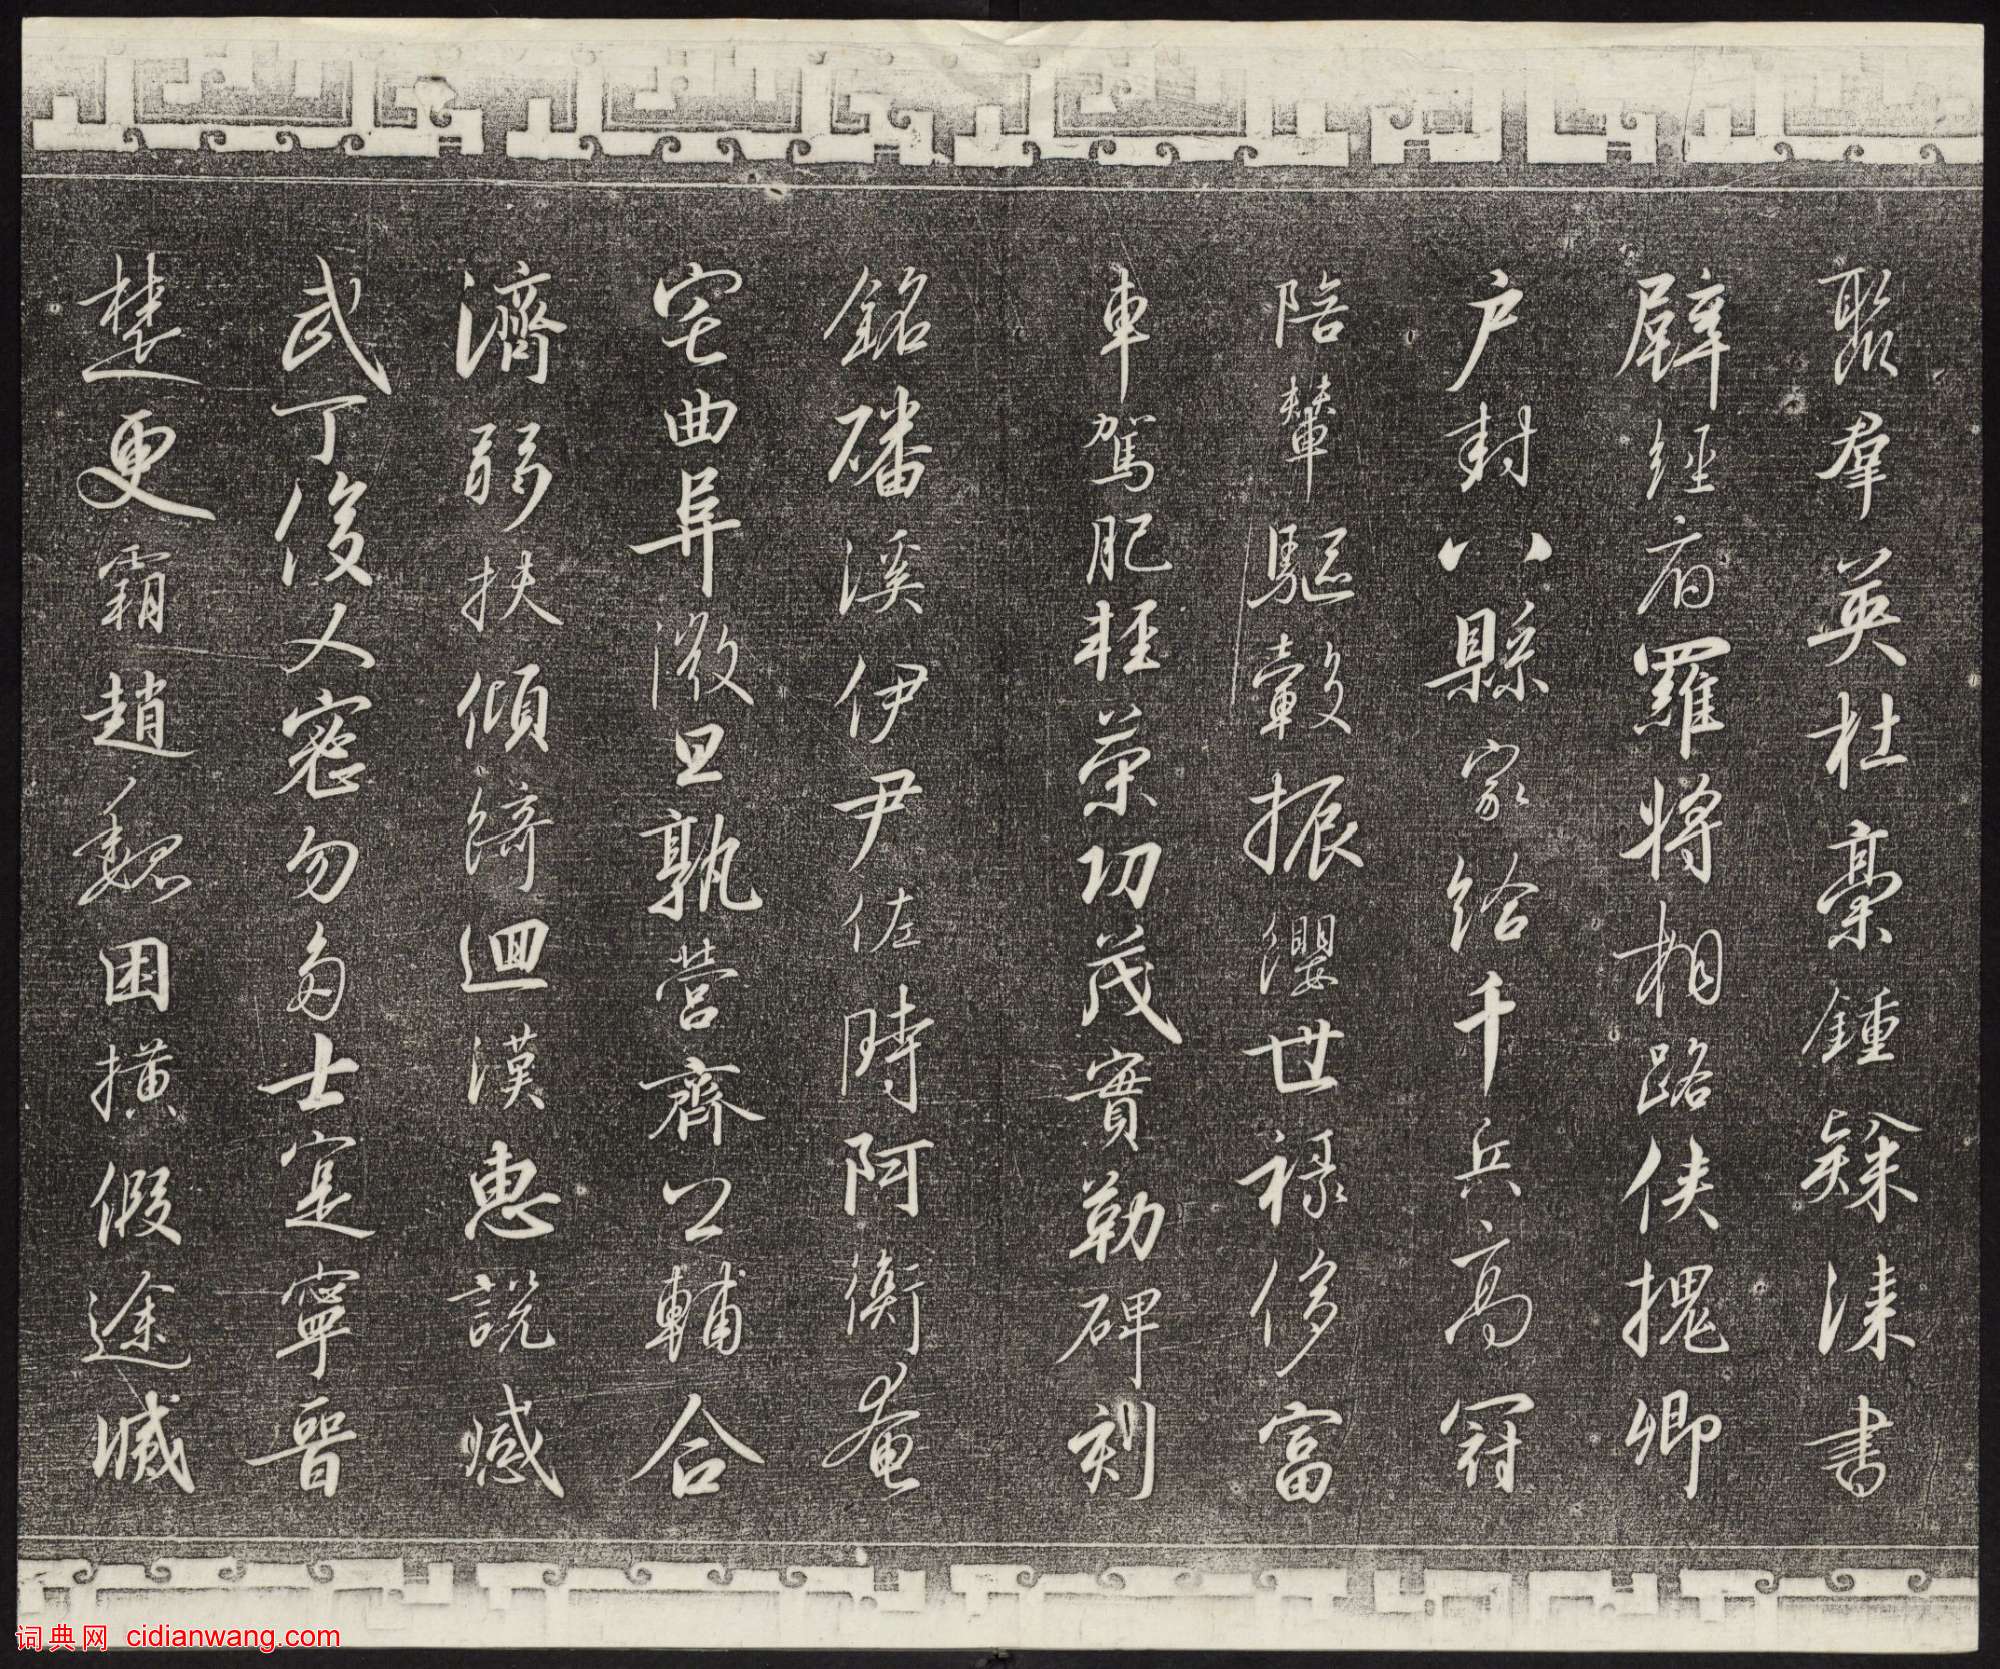 聚羣英杜稾鍾隸漆書
壁經府羅將相路俠槐卿
户封八縣家給千兵高冠
陪輦驅轂振纓世禄侈富
車駕肥輕策功茂實勒碑刻
銘磻溪伊尹佐時阿衡奄
宅曲阜微旦孰營齊公輔合
濟弱扶傾綺迴漢惠説感
武丁俊乂密勿多士寔寧晉
楚更霸趙魏困横假途滅
词典网 cidianwang.com